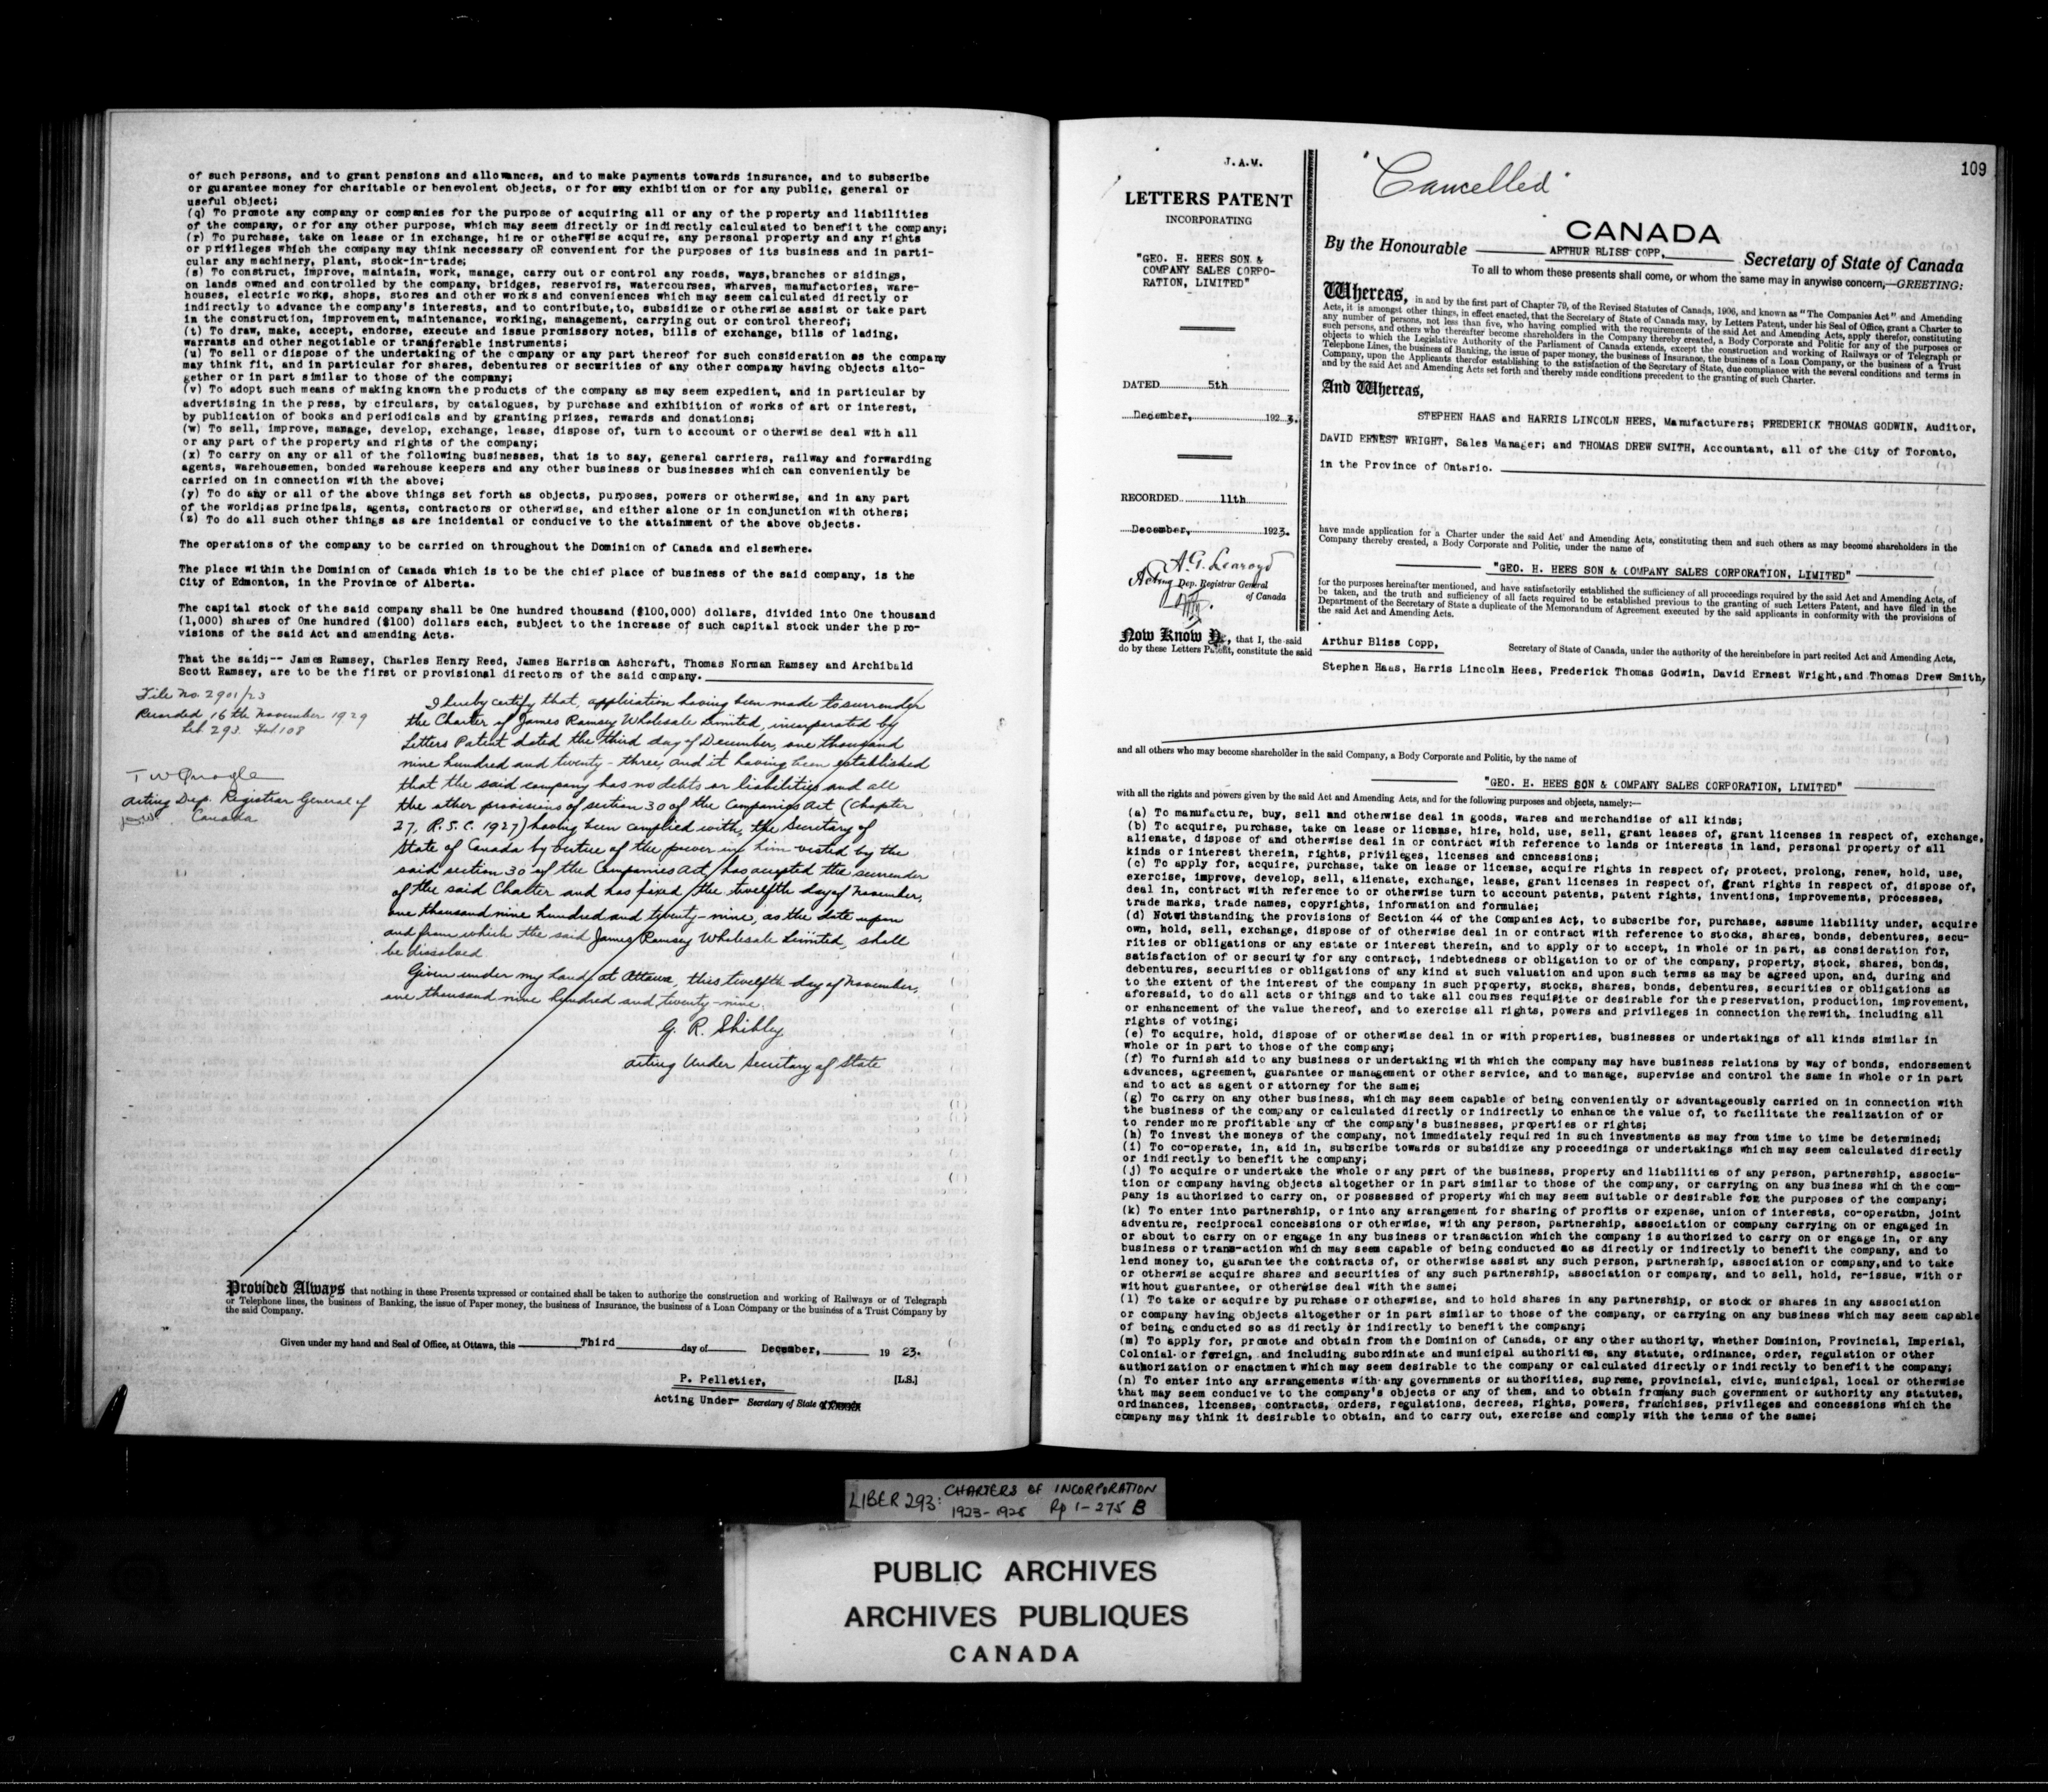 of such persons, and to grant pensions and allowances, and to make payments towards insurance, and to subscribe
or guarantee money for charitable or benevolent objects, or for any exhibition or for any public, general or
useful object;
(q) To promote any company or companies for the purpose of acquiring all or any of the property and liabilities
of the company, or for any other purpose, which may seem directly or indirectly calculated to benefit the company;
(r) To purchase, take on lease or in exchange, hire or otherwise acquire, any personal property and any rights
or privileges which the company may think necessary oR convenient for the purposes of its business and in parti-
cular any machinery, plant, stock-in-trade;
(s) To construct, improve, maintain, work, manage, carry out or control any roads, ways,branches or sidings,
on lands owned and controlled by the company, bridges, reservoirs, watercourses, wharves, manufactories, ware-
houses, electric works, shops, stores and other works and conveniences which may seem calculated directly or
indirectly to advance the company's interests, and to contribute,to, subsidize or otherwise assist or take part
in the construction, improvement, maintenance, working, management, carrying out or control thereof;
(t) To draw, make, accept, endorse, execute and issue promissory notes, bills of exchange, bills of lading,
warrants and other negotiable or transferable instruments;
(u) To sell or dispose of the undertaking of the company or any part thereof for such consideration as the company
may think fit, and in particular for shares, debentures or securities of any other company having objects alto-
gether or in part similar to those of the company;
(v) To adopt such means of making known the products of the company as may seem expedient, and in particular by
advertising in the press, by circulars, by catalogues, by purchase and exhibition of works of art or interest,
by publication of books and periodicals and by granting prizes, rewards and donations;
(w) To sell, improve, manage, develop, exchange, lease, dispose of, turn to account or otherwise deal with all
or any part of the property and rights of the company;
(x) To carry on any or all of the following businesses, that is to say, general carriers, railway and forwarding
agents, warehousemen, bonded warehouse keepers and any other business or businesses which can conveniently be
carried on in connection with the above;
(y) To do any or all of the above things set forth as objects, purposes, powers or otherwise, and in any part
of the world;as principals, agents, contractors or otherwise, and either alone or in conjunction with others;
(z) To do all such other things as are incidental or conducive to the attainment of the above objects.
The operations of the company to be carried on throughout the Dominion of Canada and elsewhere.
The place within the Dominion of Canada which is to be the chief place of business of the said company, is the
City of Edmonton, in the Province of Alberta.
The capital stock of the said company shall be One hundred thousand ($100,000) dollars, divided into One thousand
(1,000) shares of One hundred ($100) dollars each, subject to the increase of such capital stock under the pro-
visions of the said Act and amending Acts.
That the said;-- James Ramsey, Charles Henry Reed, James Harrison Ashcraft, Thomas Norman Ramsey and Archibald
Scott Ramsey, are to be the first or provisional directors of the said company.
File No. 2901/23
Recorded 16th November 1929
Lib 293. Fol. 108
Acting Dep. Registrar General of
Canada
I hereby certify that, application having been made to surrender
the Charter of James Ramsey Wholesale Limited, incorporated by
Letters Patent dated the third day of December, one thousand
nine hundred and twenty-three, and it having been established
that the said company has no debts or liabilities and all
the other provisions of section 30 of the Companies Act (Chapter
27, R.S.C. 1927) having been complied with, the Secretary of
State of Canada by virtue of the power in him vested by the
said section 30 of the Companies Act, has accepted the surrender
of the said Charter and has fixed the twelfth day of November,
one thousand nine hundred and twenty-nine, as the date upon
and from which the said James Ramsey Wholesale Limited, shall
be dissolved
Given under my hand at Ottawa, this twelfth day of November,
one thousand nine hundred and twenty-nine.
G. R. Shibley
Acting Under Secretary of State
Provided Always that nothing in these Presents expressed or contained shall be taken to authorize the construction and working of Railways or of Telegraph
or Telephone lines, the business of Banking, the issue of Paper money, the business of Insurance, the business of a Loan Company or the business of a Trust Company by
the said Company.
Given under my hand and Seal of Office, at Ottawa, this Third day of December, 19 23.
P. Pelletier, [L.S.]
Acting Under- Secretary of State
J.A.M.
LETTERS PATENT
INCORPORATING
"GEO. H. HEES SON &
COMPANY SALES CORPO-
RATION, LIMITED"
DATED 5th
December, 1923.
RECORDED 11th
December, 1923.
A. G. Learoyd
Acting Dep. Registrar General
of Canada
109
"Cancelled"
CANADA
By the Honourable ARTHUR BLISS COPP, Secretary of State of Canada
To all to whom these presents shall come, or whom the same may in anywise concern,—GREETING:
Whereas, in and by the first part of Chapter 79, of the Revised Statutes of Canada, 1906, and known as "The Companies Act" and Amending
Acts, it is amongst other things, in effect enacted, that the Secretary of State of Canada may, by Letters Patent, under his Seal of Office, grant a Charter to
any number of persons, not less than five, who having complied with the requirements of the said Act and Amending Acts, apply therefor, constituting
such persons, and others who thereafter become shareholders in the Company thereby created, a Body Corporate and Politic for any of the purposes or
objects to which the Legislative Authority of the Parliament of Canada extends, except the construction and working of Railways or of Telegraph or
Telephone Lines, the business of Banking, the issue of paper money, the business of Insurance, the business of a Loan Company, or the business of a Trust
Company, upon the Applicants therefor establishing to the satisfaction of the Secretary of State, due compliance with the several conditions and terms in
and by the said Act and Amending Acts set forth and thereby made conditions precedent to the granting of such Charter.
And Whereas,
STEPHEN HAAS and HARRIS LINCOLN HEES, Manufacturers; FREDERICK THOMAS GODWIN, Auditor,
DAVID ERNEST WRIGHT, Sales Manager; and THOMAS DREW SMITH, Accountant, all of the City of Toronto,
in the Province of Ontario.
have made application for a Charter under the said Act and Amending Acts, constituting them and such others as may become shareholders in the
Company thereby created, a Body Corporate and Politic, under the name of
"GEO. H. HEES SON & COMPANY SALES CORPORATION, LIMITED"
for the purposes hereinafter mentioned, and have satisfactorily established the sufficiency of all proceedings required by the said Act and Amending Acts, to
be taken, and the truth and sufficiency of all facts required to be established previous to the granting of such Letters Patent, and have filed in the
Department of the Secretary of State a duplicate of the Memorandum of Agreement executed by the said applicants in conformity with the provisions of
the said Act and Amending Acts.
Now Know Ye, that I, the said Arthur Bliss Copp, Secretary of State of Canada, under the authority of the hereinbefore in part recited Act and Amending Acts,
do by these Letters Patent, constitute the said
Stephen Haas, Harris Lincoln Hees, Frederick Thomas Godwin, David Ernest Wright,and Thomas Drew Smith,
and all others who may become shareholder in the said Company, a Body Corporate and Politic, by the name of
"GEO. H. HEES SON & COMPANY SALES CORPORATION, LIMITED"
with all the rights and powers given by the said Act and Amending Acts, and for the following purposes and objects, namely:—
(a) To manufacture, buy, sell and otherwise deal in goods, wares and merchandise of all kinds;
(b) To acquire, purchase, take on lease or license, hire, hold, use, sell, grant leases of, grant licenses in respect of, exchange,
alienate, dispose of and otherwise deal in or contract with reference to lands or interests in land, personal property of all
kinds or interest therein, rights, privileges, licenses and cnncessions;
(c) To apply for, acquire, purchase, take on lease or license, acquire rights in respect of, protect, prolong, renew, hold, use,
exercise, improve, develop, sell, alienate, exchange, lease, grant licenses in respect of, grant rights in respect of, dispose of,
deal in, contract with reference to or otherwise turn to account patents, patent rights, inventions, improvements, processes,
trade marks, trade names, copyrights, information and formulae;
(d) Notwithstanding the provisions of Section 44 of the Companies Act, to subscribe for, purchase, assume liability under, acquire
own, hold, sell, exchange, dispose of of otherwise deal in or contract with reference to stocks, shares, bonds, debentures, secu-
rities or obligations or any estate or interest therein, and to apply or to accept, in whole or in part, as consideration for,
satisfaction of or security for any contract, indebtedness or obligation to or of the company, property, stock, shares, bonds,
debentures, securities or obligations of any kind at such valuation and upon such terms as may be agreed upon, and, during and
to the extent of the interest of the company in such property, stocks, shares, bonds, debentures, securities or obligations as
aforesaid, to do all acts or things and to take all courses requisite or desirable for the preservation, production, improvement,
or enhancement of the value thereof, and to exercise all rights, powers and privileges in connection therewith, including all
rights of voting;
(e) To acquire, hold, dispose of or otherwise deal in or with properties, businesses or undertakings of all kinds similar in
whole or in part to those of the company;
(f) To furnish aid to any business or undertaking with which the company may have business relations by way of bonds, endorsement
advances, agreement, guarantee or management or other service, and to manage, supervise and control the same in whole or in part
and to act as agent or attorney for the same;
(g) To carry on any other business, which may seem capable of being conveniently or advantageously carried on in connection with
the business of the company or calculated directly or indirectly to enhance the value of, to facilitate the realization of or
to render more profitable any of the company's businesses, properties or rights;
(h) To invest the moneys of the company, not immediately required in such investments as may from time to time be determined;
(i) To co-operate, in, aid in, subscribe towards or subsidize any proceedings or undertakings which may seem calculated directly
or indirectly to benefit the company;
(j) To acquire or undertake the whole or any part of the business, property and liabilities of any person, partnership, associa-
tion or company having objects altogether or in part similar to those of the company, or carrying on any business which the com-
pany is authorized to carry on, or possessed of property which may seem suitable or desirable for the purposes of the company;
(k) To enter into partnership, or into any arrangement for sharing of profits or expense, union of interests, co-operation, joint
adventure, reciprocal concessions or otherwise, with any person, partnership, association or company carrying on or engaged in
or about to carry on or engage in any business or transaction which the company is authorized to carry on or engage in, or any
business or trans-action which may seem capable of being conducted so as directly or indirectly to benefit the company, and to
lend money to, guarantee the contracts of, or otherwise assist any such person, partnership, association or company,and to take
or otherwise acquire shares and securities of any such partnership, association or company, and to sell, hold, re-issue, with or
without guarantee, or otherwise deal with the same;
(l) To take or acquire by purchase or otherwise, and to hold shares in any partnership, or stock or shares in any association
or company having objects altogether or in part similar to those of the company, or carrying on any business which may seem capable
of being conducted so as directly or indirectly to benefit the company;
(m) To apply for, promote and obtain from the Dominion of Canada, or any other authority, whether Dominion, Provincial, Imperial,
Colonial or foreign, and including subordinate and municipal authorities, any statute, ordinance, order, regulation or other
authorization or enactment which may seem desirable to the company or calculated directly or indirectly to benefit the company;
(n) To enter into any arrangements with any governments or authorities, supreme, provincial, civic, municipal, local or otherwise
that may seem conducive to the company's objects or any of them, and to obtain from any such government or authority any statutes,
ordinances, licenses, contracts, orders, regulations, decrees, rights, powers, franchises, privileges and concessions which the
company may think it desirable to obtain, and to carry out, exercise and comply with the terms of the same;
LIBER 293: CHARTERS OF INCORPORATION
1923-1928 Rp 1-275 B
PUBLIC ARCHIVES
ARCHIVES PUBLIQUES
CANADA